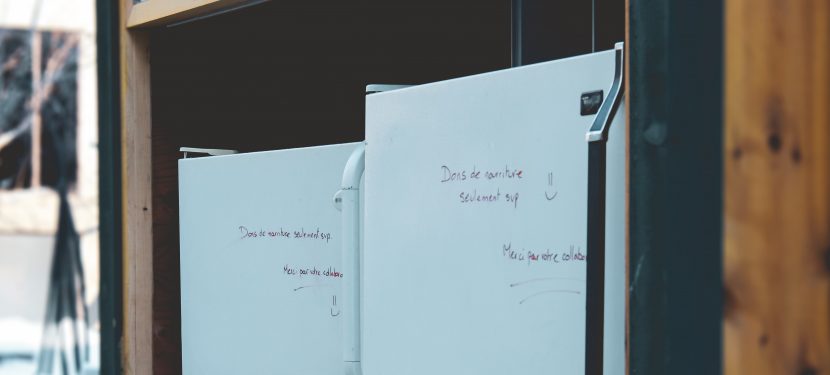 Dons de nourriture seulement svp.
Merci par votre collabora
Dons de nourriture
seulement svp
Merci par votre collabora